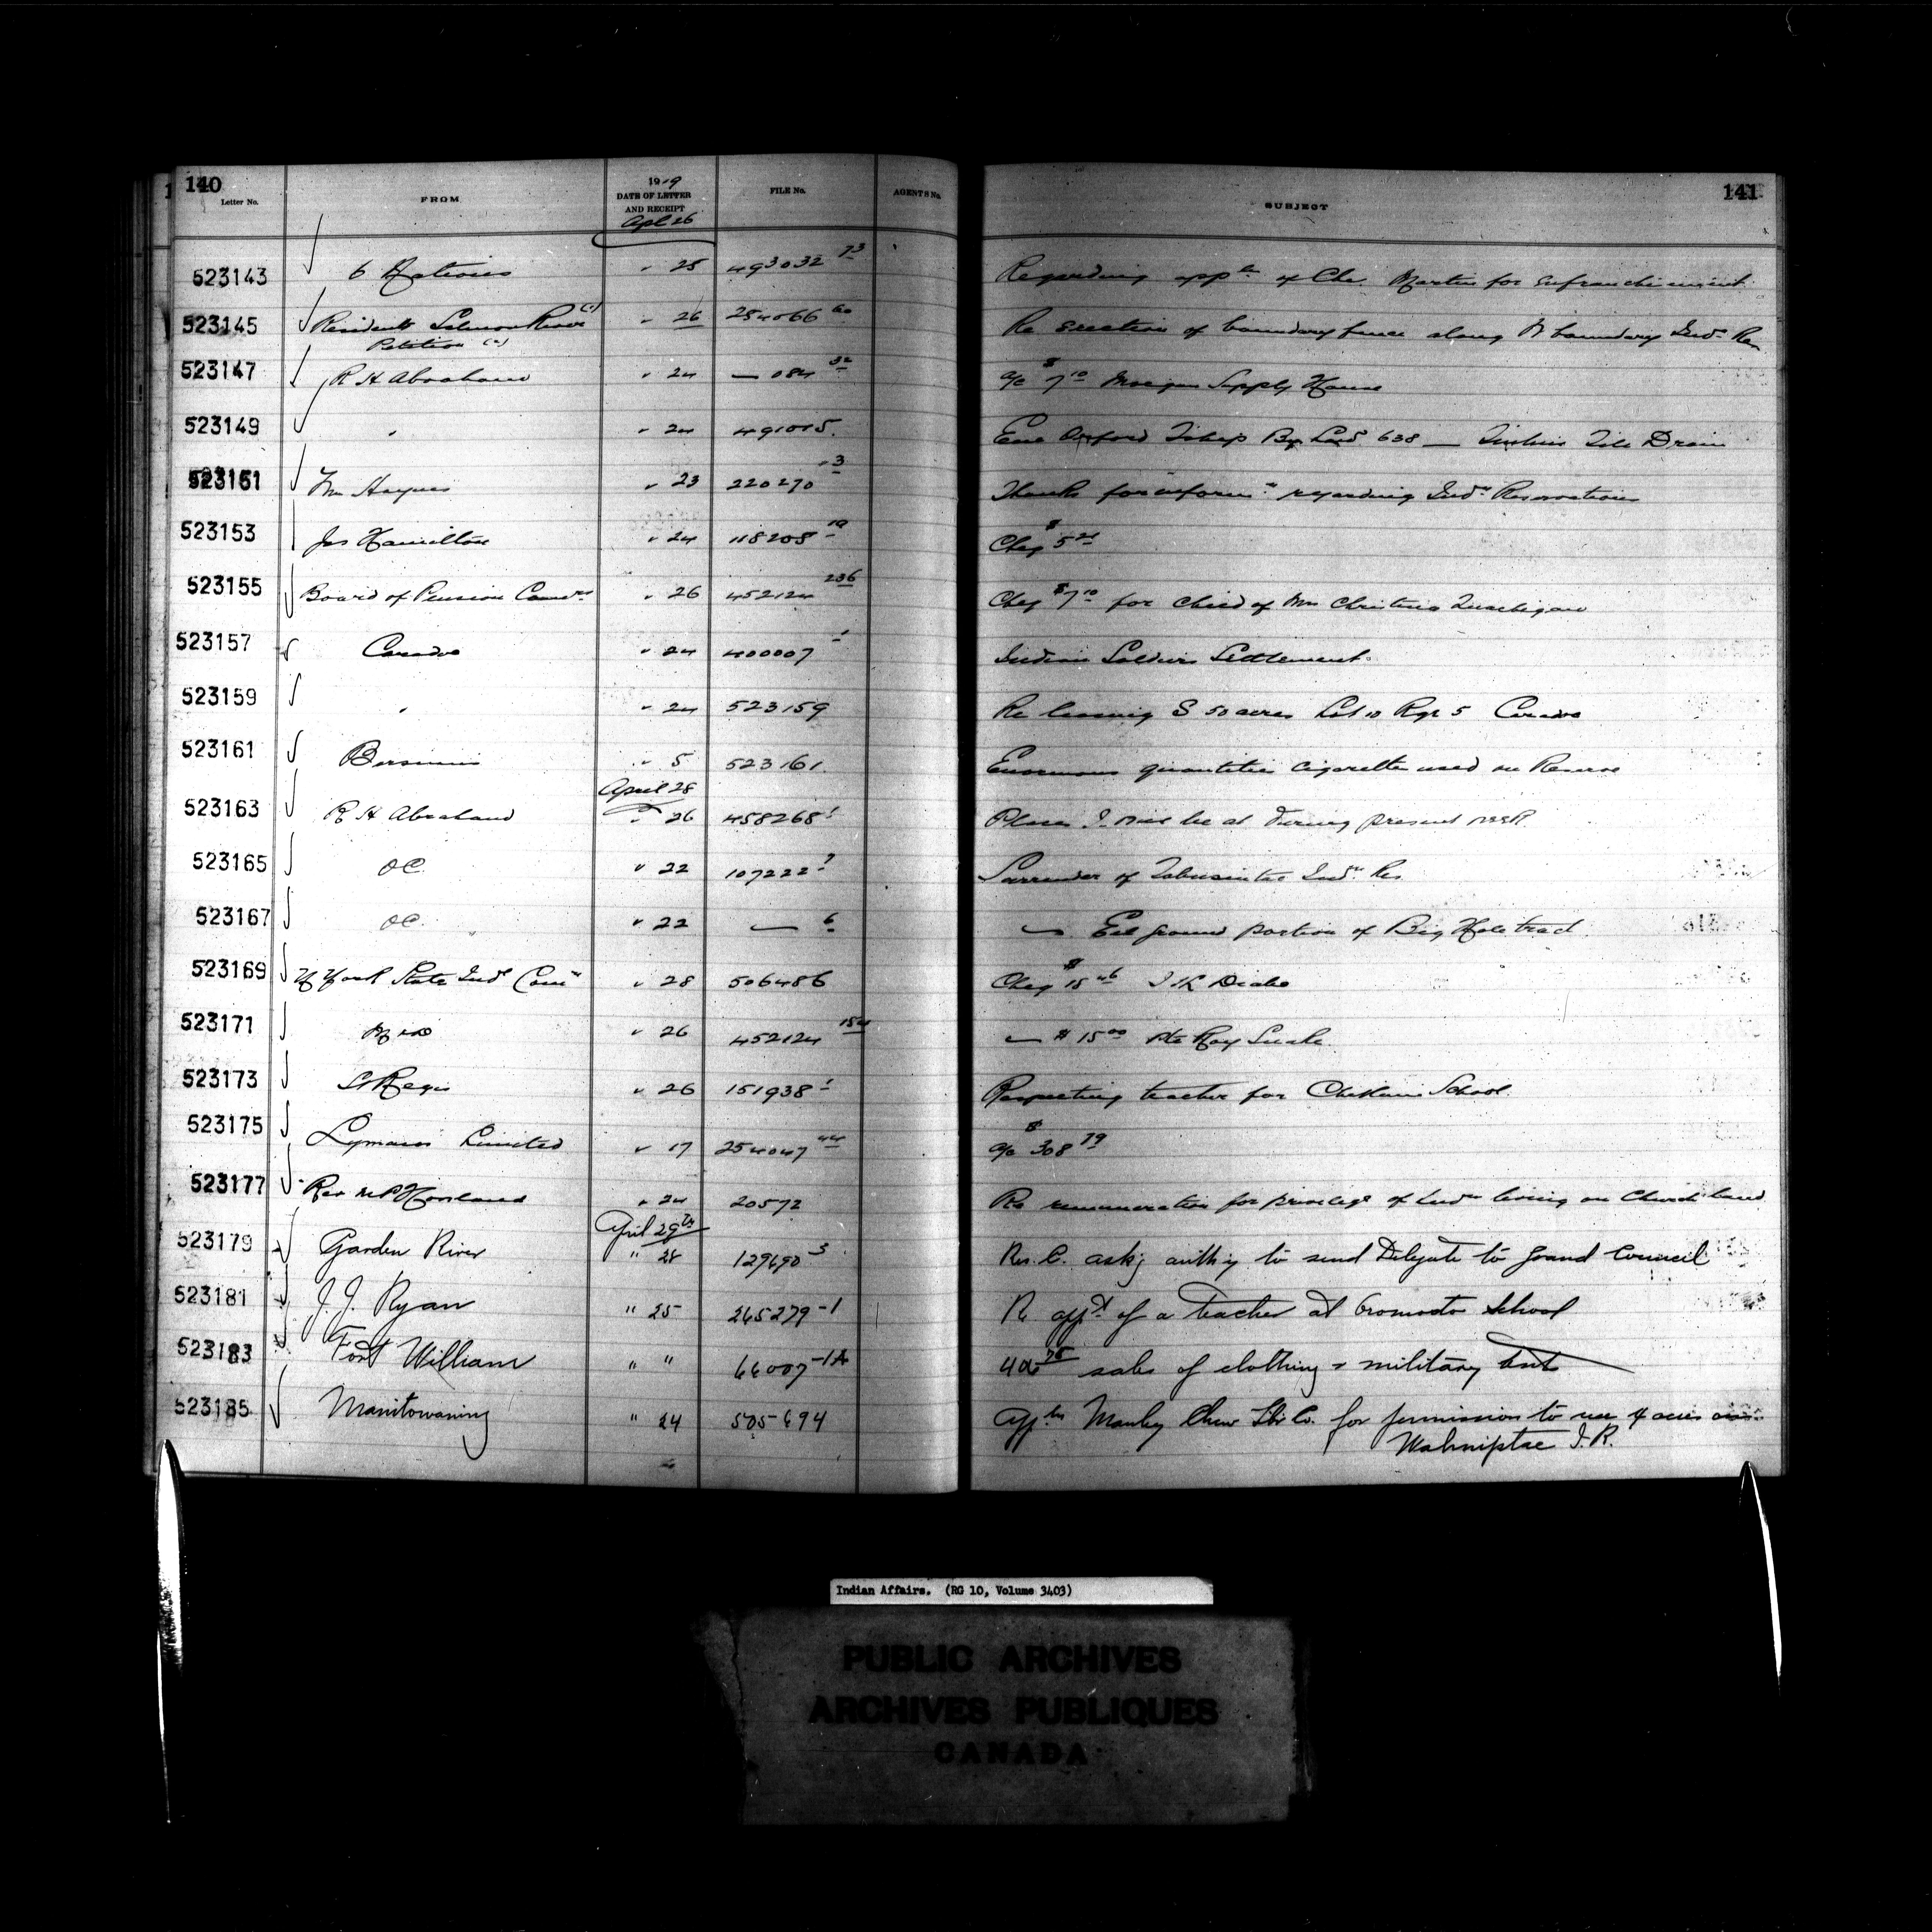 140
Letter No.
FROM
1919
DATE OF LETTER
AND RECEIPT
FILE No.
AGENTS No.
141
SUBJECT
Apl 26
523143 6 Nations " 25 493032 73 Regarding appln of Chs. Martin for enfranchisement
523145 Residents Salmon River (1) " 26 254066 60 Re erection of boundary fence along N boundary Indn Res
Petition (2)
523147 R H Abraham " 24 — 084 32 a/c $7 10 Supply House
523149 " " 24 491015 Oxford Tship By Law 638 — Tile Drain
523151 Haynes " 23 220270 -3 Thanks for informn regarding Indn Reservations
523153 Jas Hamilton " 24 118208 19 Cheq $5
523155 Board of Pension Comrs " 26 452124 236 Cheq $7 10 for child of Mrs Christina
523157 Caradoc " 24 400007 1 Indian Soldiers Settlement
523159 " " 24 523159 Re leasing S 50 acres Lot 10 Rge 5 Caradoc
523161 Bersimis " 5 523161 Enormous quantities cigarettes used on Reserve
April 28
523163 R H Abraham " 26 458268 1 Places I will be at during present week
523165 OC " 22 107222 7 Surrender of Tabusintac Indn Res
523167 OC " 22 — 6 — Eel ground portion of Big Hole tract
523169 N York State Indn Comn " 28 506486 Cheq $18 46 Drake
523171 M & D " 26 452124 154 — $15 00 Pte Roy Snake
523173 St Regis " 26 151938 1 Respecting teacher for School
523175 Lymans Limited " 17 254047 44 a/c $308 79
523177 Rev " 24 20572 Re remuneration for privilege of Indns living on Church land
April 29th
523179 Garden River " 28 129690 3 Res. C. askg authy to send Delegate to Grand Council
523181 J. J. Ryan " 25 265279-1 Re appt of a teacher at Oromocto School
523183 Fort William " " 66007-1A sale of clothing & military
523185 Manitowaning " 24 505694 Appln Manley Chew Lbr Co. for permission to use 4 acres on
Wahnipitae I.R.
Indian Affairs. (RG 10, Volume 3403)
PUBLIC ARCHIVES
ARCHIVES PUBLIQUES
CANADA